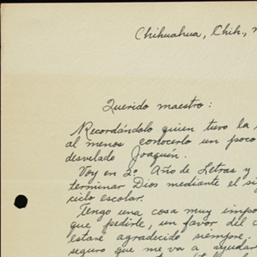 Chihuahua, Chih,
Querido maestro:
Recordándolo quien tuvo la
al menos conocerlo un poco
desvelado Joaquín.
Voy en 2º Año de Letras y
terminar Dios mediante el si
cielo escolar.
Tengo una cosa muy impo
que pedirle, un favor del c
estaré agradecido siempre.
seguro que me va a ayudar